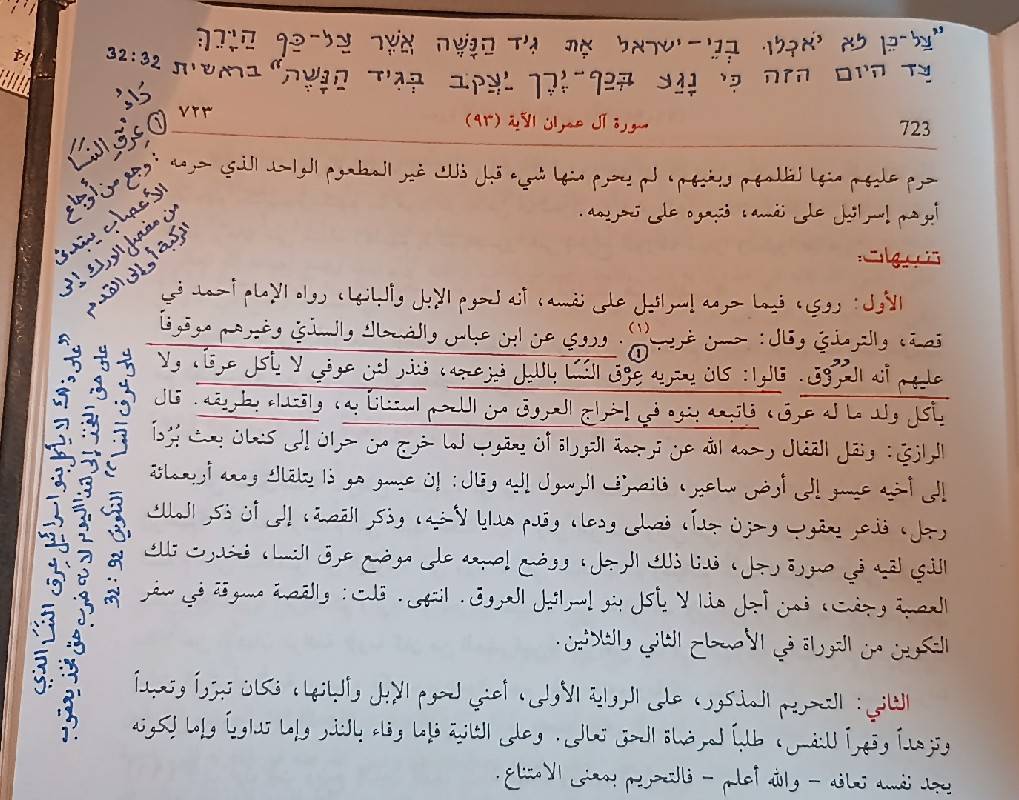 "עַל-כֵּן לֹא יֹאכְלוּ בְנֵי-יִשְׂרָאֵל אֶת גִּיד הַנָּשֶׁה אֲשֶׁר עַל-כַּף הַיָּרֵךְ
עַד הַיּוֹם הַזֶּה כִּי נָגַע בְּכַף-יֶרֶךְ יַעֲקֹב בְּגִיד הַנָּשֶׁה" בראשית 32:32
723 سورة آل عمران الآية (٩٣) ٧٢٣
حرم عليهم منها لظلمهم وبغيهم، لم يحرم منها شيء قبل ذلك غير المطعوم الواحد الذي حرمه
أبوهم إسرائيل على نفسه، فتبعوه على تحريمه.
تنبيهات:
الأول: روي، فيما حرمه إسرائيل على نفسه، أنه لحوم الإبل وألبانها، رواه الإمام أحمد في
قصة، والترمذيّ وقال: حسن غريب(١). وروي عن ابن عباس والضحاك والسدّيّ وغيرهم موقوفاً
عليهم أنه العُرُوق. قالوا: كان يعتريه عِرْق النَّسَا بالليل فيزعجه، فنذر لئن عوفي لا يأكل عرقاً، ولا
يأكل ولد ما له عرق، فاتبعه بنوه في إخراج العروق من اللحم استناناً به، واقتداء بطريقه. قال
الرازيّ: ونقل القفال رحمه الله عن ترجمة التوراة أن يعقوب لما خرج من حران إلى كنعان بعث بُرُداً
إلى أخيه عيسو إلى أرض ساعير، فانصرف الرسول إليه وقال: إن عيسو هو ذا يتلقاك ومعه أربعمائة
رجل، فذعر يعقوب وحزن جداً، فصلى ودعا، وقدم هدايا لأخيه، وذكر القصة، إلى أن ذكر الملك
الذي لقيه في صورة رجل، فدنا ذلك الرجل، ووضع إصبعه على موضع عرق النسا، فخدرت تلك
العصبة وجفت، فمن أجل هذا لا يأكل بنو إسرائيل العروق. انتهى. قلت: والقصة مسوقة في سفر
التكوين من التوراة في الأصحاح الثاني والثلاثين.
الثاني: التحريم المذكور، على الرواية الأولى، أعني لحوم الإبل وألبانها، فكان تبرّراً وتعبداً
وتزهداً وقهراً للنفس، طلباً لمرضاة الحق تعالى. وعلى الثانية فإما وفاء بالنذر وإما تداوياً وإما لكونه
يجد نفسه تعافه - والله أعلم - فالتحريم بمعنى الامتناع.
① دَاءُ
عِرْقِ النَّسَا
: وجع من أوجاع
الأعصاب يبتدئ
من مفصل الورك إلى
الركبة أو إلى القدم
"على ذلك لا يأكل بنو اسرائيل عرق النَّسَا الذي
على حق الفخذ إلى هذا اليوم لأنه ضرب حق فخذ يعقوب
على عرق النسا" التكوين 32:32